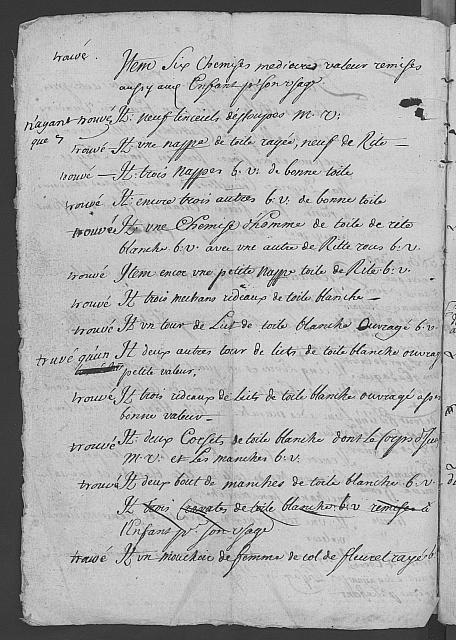 trouvé. Item Six Chemises mediocres valeur remises
aussy aux Enfant pr son usage
n'ayant trouvé It: neuf linceuils d'estoupes m.v.
que 7
trouvé It vne nappe de toile rayée, neuf de Rite —
trouvé — It: trois nappes b.v. de bonne toile
trouvé It: encore trois autres b.v. de bonne toile
trouvé It vne Chemise d'homme de toile de rite
blanche b.v. avec vne autre de Ritte rous b.v.
trouvé Item encor vne petite nappe toile de Rite b.v.
trouvé It trois mechans rideaux de toile blanche —
trouvé It vn tour de Lict de toile blanche Ouvragé b.v.
truvé qúun It deux autres tour de licts de toile blanche ouvrag
petite valeur.
trouvé It trois rideaux de licts de toile blanche ouvragé
bonne valeur —
trouvé It: deux Corsets de toile blanche dont le corps d'
m.v. et Les manches b.v.
trouvé It deux bout de manches de toile blanche b.v.
It trois Cravates de toile blanche b.v. remises à
l'Enfant pr son usage
trouvé It vn mouchoir de femme de col de fleuret rayé b.